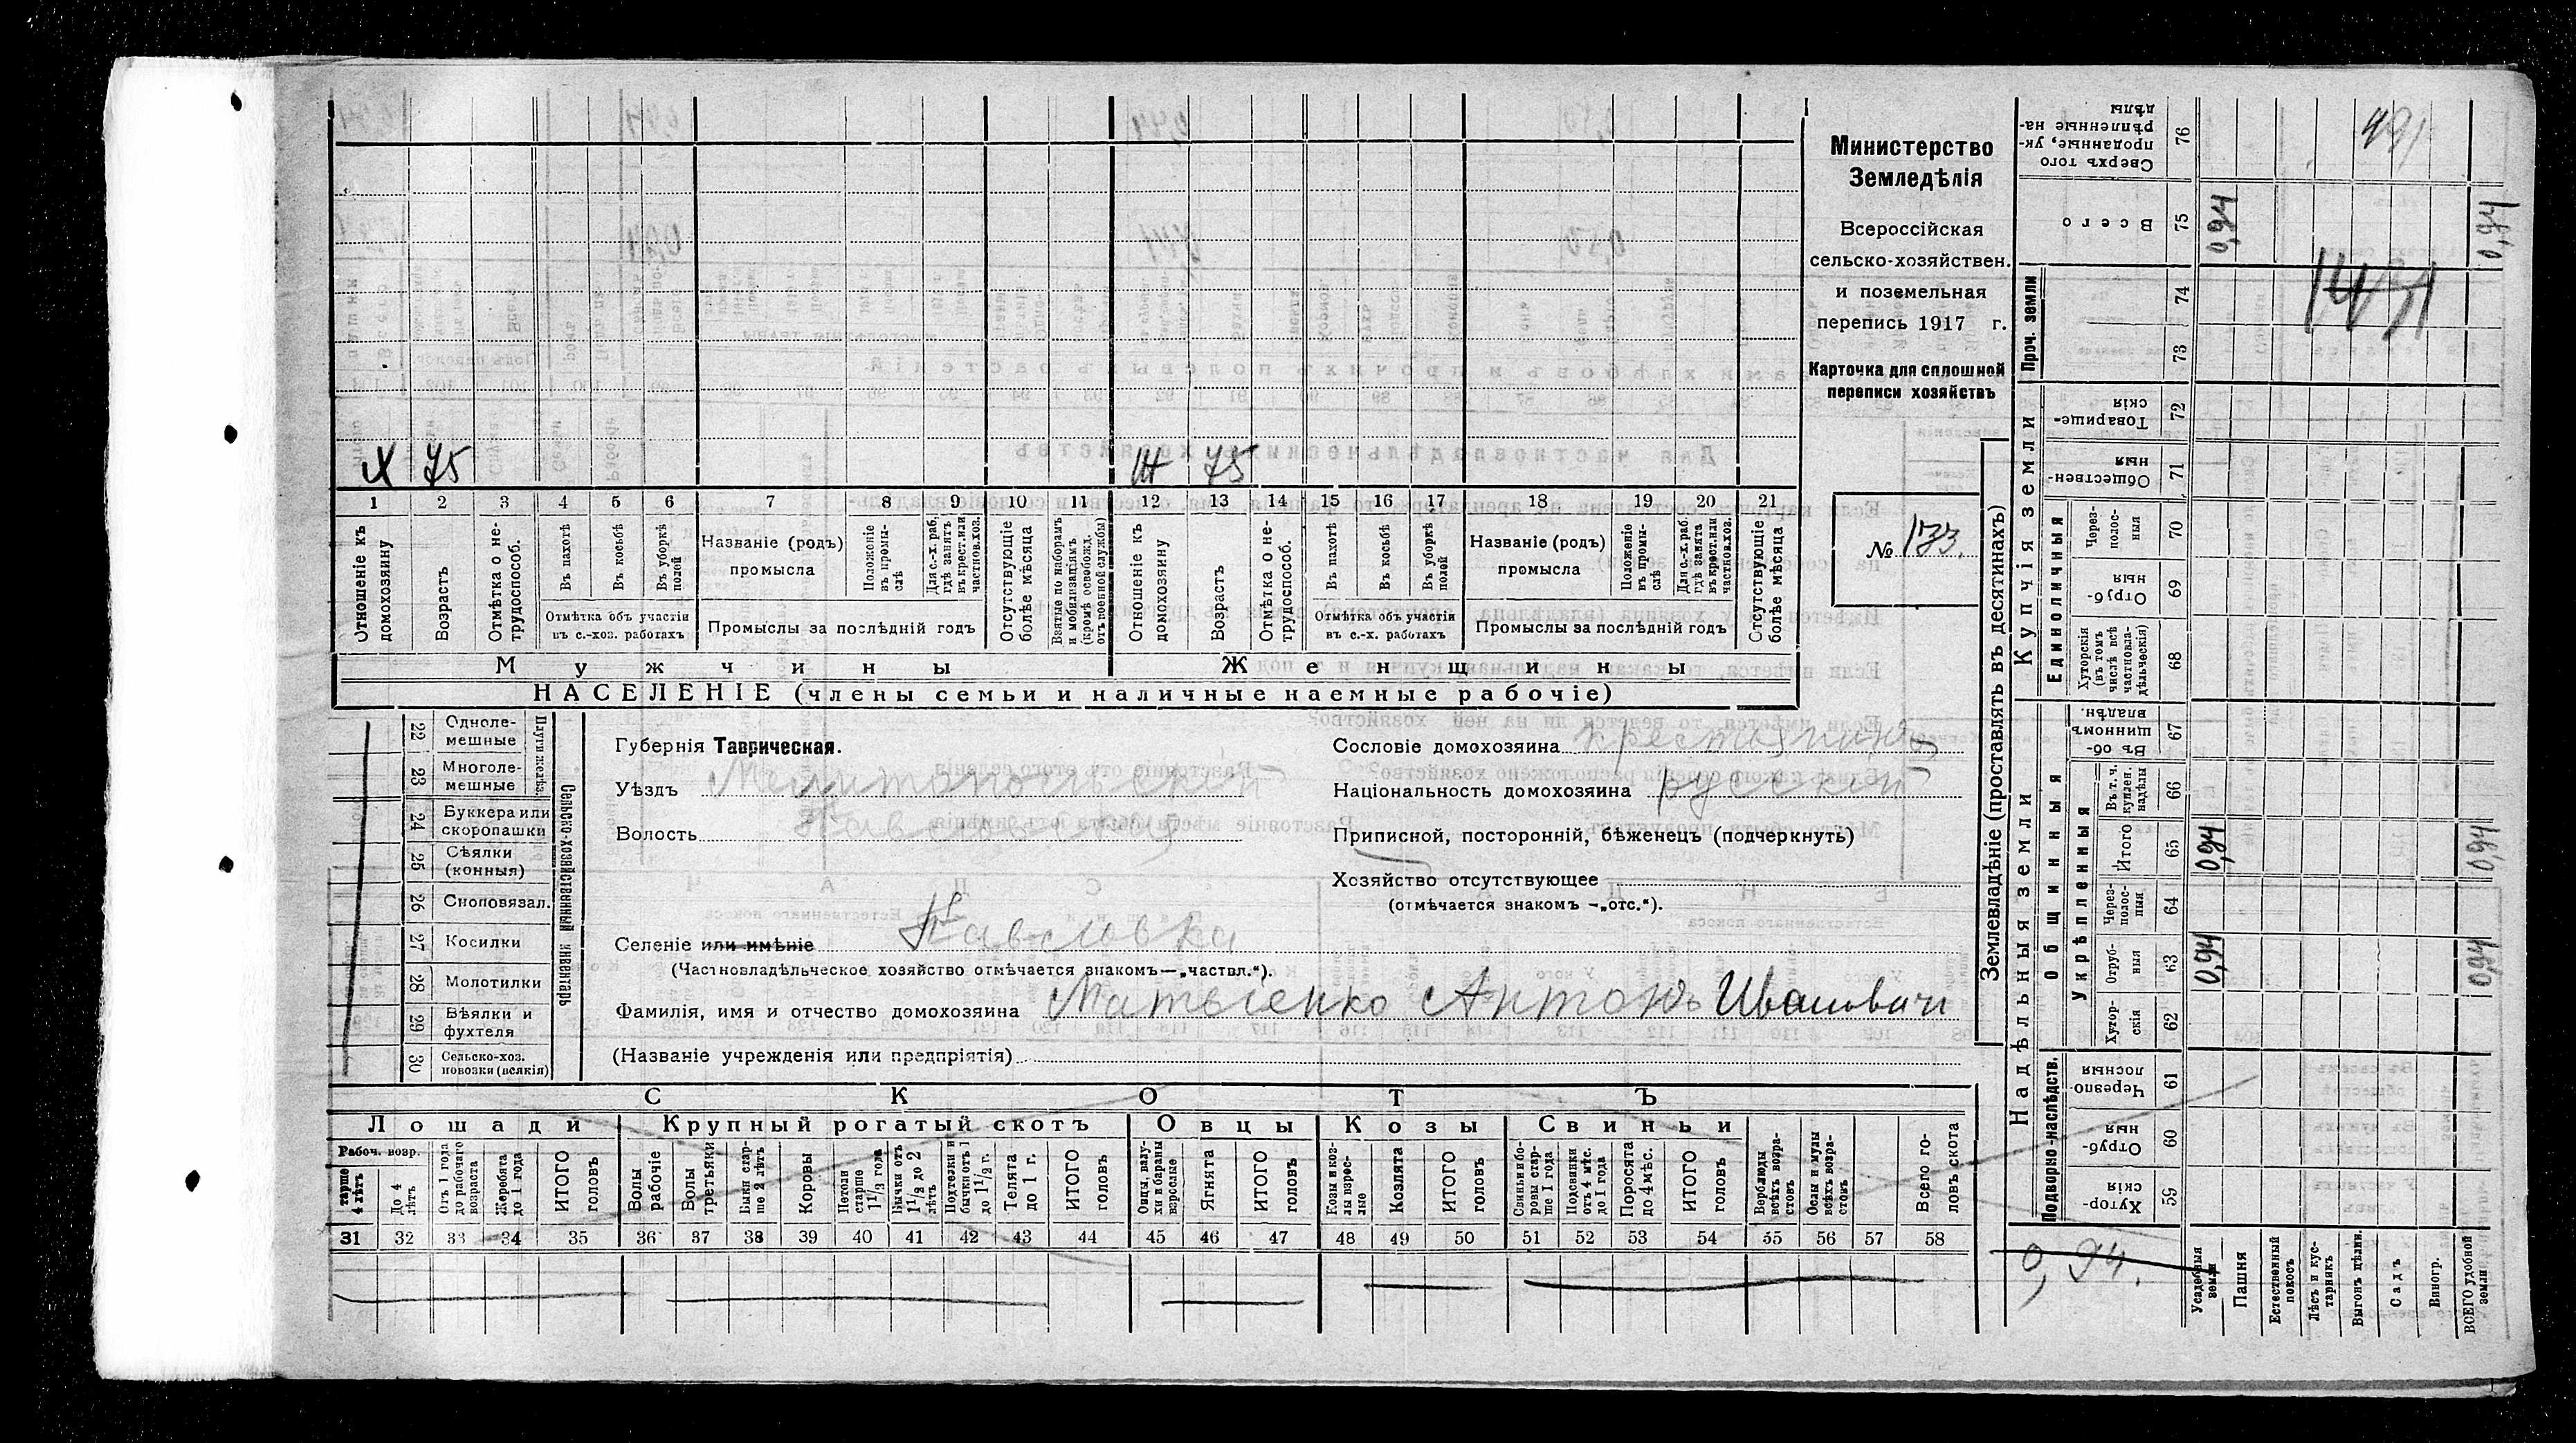 Министерство
Земледѣлія
Всероссійская
сельско-хозяйствен.
и поземельная
перепись 1917 г.
Карточка для сплошной
переписи хозяйствъ
№ 133.
Х 75
Ж 75
1 2 3 4 5 6 7 8 9 10 11 12 13 14 15 16 17 18 19 20 21
Отношеніе къ домохозяину
Возрастъ
Отмѣтка о не-трудоспособ.
Въ пахотѣ
Въ косьбѣ
Въ уборкѣ полей
Отмѣтка объ участіи
въ с.-хоз. работахъ
Названіе (родъ)
промысла
Положеніе въ промы-слѣ
Для с.-х. раб. гдѣ занятъ въ крест. или частновл. хоз.
Промыслы за послѣдній годъ
Отсутствующіе болѣе мѣсяца
Взятые по наборамъ и мобилизаціямъ (кромѣ освобожд. отъ военной службы)
Отношеніе къ домохозяину
Возрастъ
Отмѣтка о не-трудоспособ.
Въ пахотѣ
Въ косьбѣ
Въ уборкѣ полей
Отмѣтка объ участіи
въ с.-х. работахъ
Названіе (родъ)
промысла
Положеніе въ промы-слѣ
Для с.-х. раб. гдѣ занята въ крест. или частновл. хоз.
Промыслы за послѣдній годъ
Отсутствующіе болѣе мѣсяца
Мужчины
Женщины
НАСЕЛЕНІЕ (члены семьи и наличные наемные рабочіе)
22 Одноле-мешные
23 Многоле-мешные
Плуги желѣз.
24 Буккера или скоропашки
25 Сѣялки (конныя)
26 Сноповязал.
27 Косилки
28 Молотилки
29 Вѣялки и фухтеля
30 Сельско-хоз. повозки (всякія)
Сельско-хозяйственный инвентарь
Губернія Таврическая.
Уѣздъ Мелитопольскій
Волость
Селеніе или имѣніе Павловка
(Частновладѣльческое хозяйство отмѣчается знакомъ—„частвл.“).
Фамилія, имя и отчество домохозяина Матвіенко Антонъ Иванович
(Названіе учрежденія или предпріятія)
Сословіе домохозяина крестьянинъ
Національность домохозяина русскій
Приписной, посторонній, бѣженецъ (подчеркнуть)
Хозяйство отсутствующее
(отмѣчается знакомъ —„отс.“).
СКОТЪ
Лошади
Крупный рогатый скотъ
Овцы
Козы
Свиньи
Рабоч. возр.
старше 4 лѣтъ
До 4 лѣтъ
Отъ 1 года до рабочаго возраста
Жеребята до 1 года
ИТОГО головъ
Волы рабочіе
Волы третьяки
Быки стар-ше 2 лѣтъ
Коровы
Нетели старше 1½ года
Бычки отъ 1½ до 2 лѣтъ
Подтелки и бычки отъ 1 до 1½ г.
Телята до 1 г.
ИТОГО головъ
Овцы, валу-хи и бараны взрослые
Ягнята
ИТОГО головъ
Козы и коз-лы взрос-лые
Козлята
ИТОГО головъ
Свиньи и бо-ровы стар-ше 1 года
Подсвинки отъ 4 мѣс. до 1 года
Поросята до 4 мѣс.
ИТОГО головъ
Верблюды всѣхъ возра-стовъ
Ослы и мулы всѣхъ возра-стовъ
Всего го-ловъ скота
31 32 33 34 35 36 37 38 39 40 41 42 43 44 45 46 47 48 49 50 51 52 53 54 55 56 57 58
Землевладѣніе (проставлять въ десятинахъ)
Надѣльныя земли
Купчія земли
Проч. земли
Подворно-наслѣдств.
Общинныя
Укрѣпленныя
Единоличныя
Хутор-скія 59
Отруб-ныя 60
Черезпо-лосныя 61
Хутор-скія 62
Отруб-ныя 63
Через-полос-ныя 64
Итого 65
Въ т. ч. куплен. надѣлы 66
Въ об-щинномъ владѣн. 67
Хуторскія (въ томъ числѣ всѣ частновла-дѣльческія) 68
Отруб-ныя 69
Через-полос-ныя 70
Обществен-ныя 71
Товарище-скія 72
73
74
Всего 75
Сверхъ того проданные, ук-рѣпленные на-дѣлы 76
0,94 0,94
0,94 0,94
0,94 0,94
0,94.
Усадебныя земли
Пашня
Естественный покосъ
Лѣсъ и кус-тарникъ
Выгонъ цѣлин.
Садъ
Виногр.
ВСЕГО удобной земли